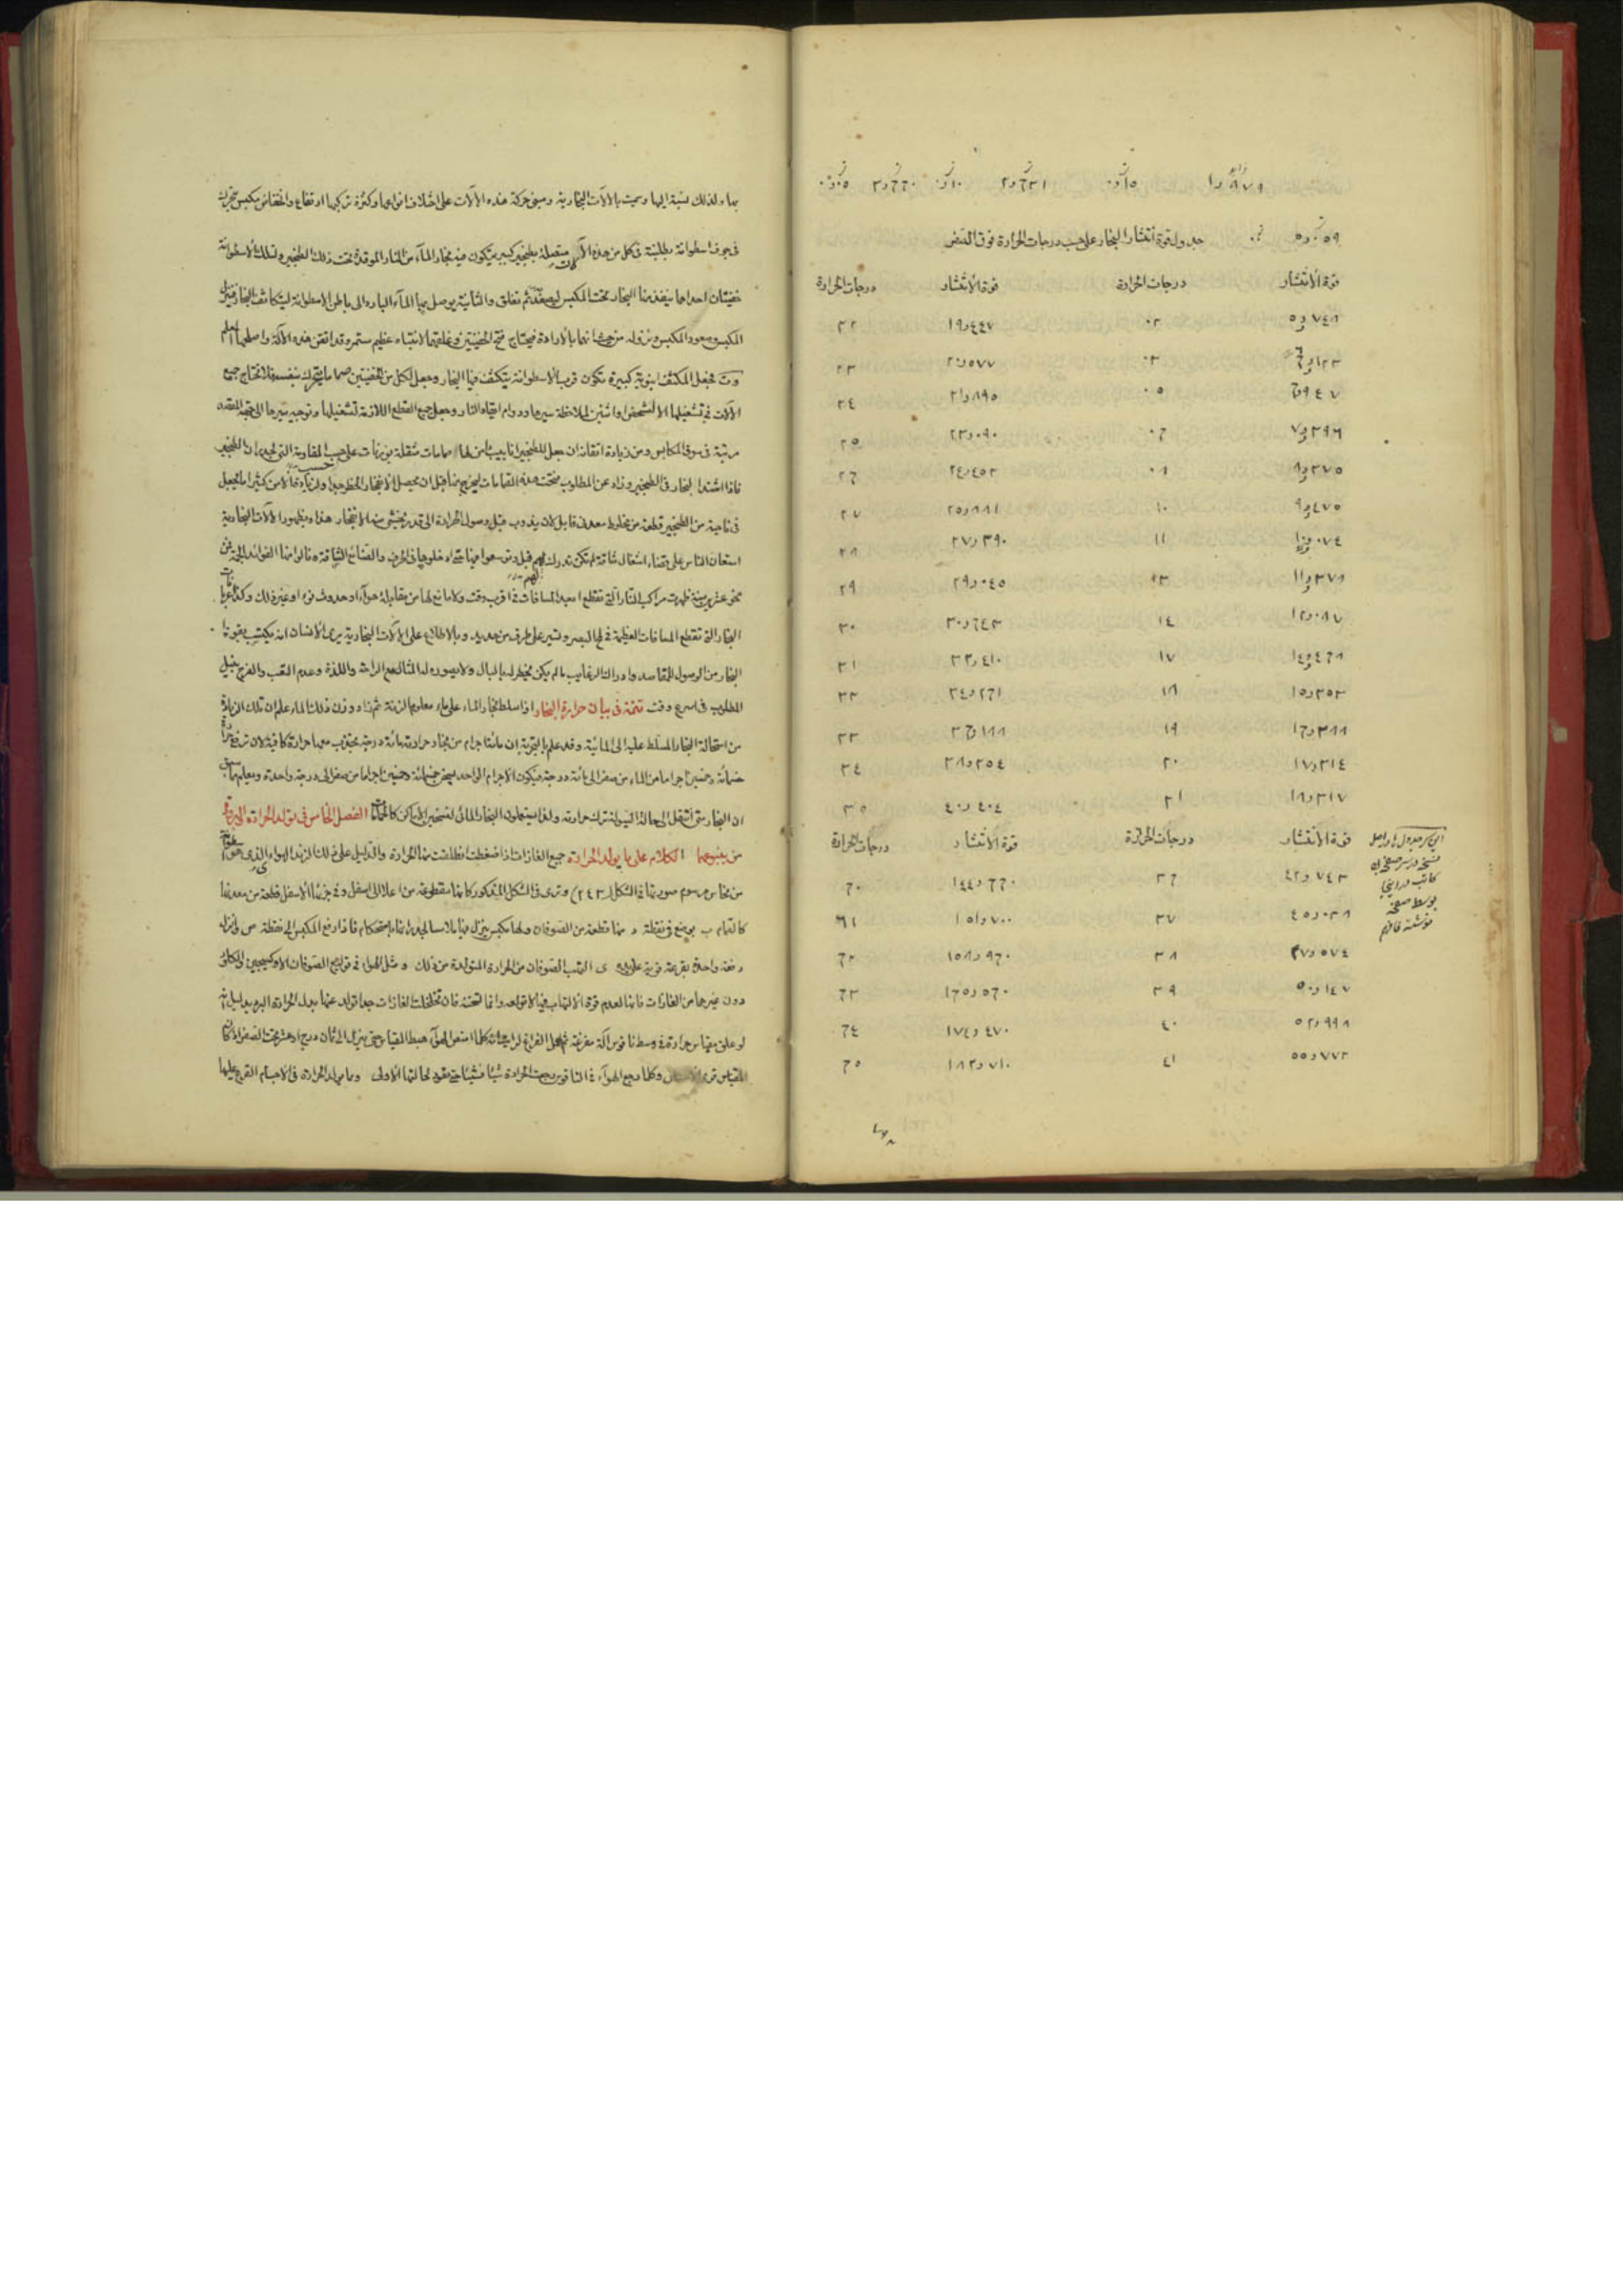 جدول قوة انتشار البخار على حسب درجات الحرارة فوق الصفر
قوة الانتشار درجات الحرارة قوة الانتشار درجات الحرارة
٥و٧٤٨ ٠٢ ١٩و٤٤٧ ٢٢
٠٣ ٢٠و٥٧٧ ٢٣
٦و٩٤٧ ٠٥ ٢١و٨٩٥ ٢٤
٧و٣٩٦ ٠٦ ٢٣و٠٩٠ ٢٥
٨و٣٧٥ ٠٨ ٢٤و٤٥٢ ٢٦
٩و٤٧٥ ١٠ ٢٥و٨٨١ ٢٧
١٠و٠٧٤ ١١ ٢٧و٣٩٠ ٢٨
١١و٣٧٨ ١٣ ٢٩و٠٤٥ ٢٩
١٢و٠٨٧ ١٤ ٣٠و٦٤٣ ٣٠
١٤و٤٦٨ ١٧ ٣٢و٤١٠ ٣١
١٥و٣٥٣ ١٨ ٣٤و٢٦١ ٣٢
١٦و٢٨٨ ١٩ ٣٦و١٨٨ ٣٣
١٧و٣١٤ ٢٠ ٣٨و٢٥٤ ٣٤
١٨و٣١٧ ٢١ ٤٠و٤٠٤ ٣٥
قوة الانتشار درجات الحرارة قوة الانتشار درجات الحرارة
٤٢و٧٤٣ ٣٦ ١٤٤و٦٦٠ ٦٠
٤٥و٠٣٨ ٣٧ ١٥١و٧٠٠ ٦١
٤٧و٥٧٤ ٣٨ ١٥٨و٩٦٠ ٦٢
٥٠و١٤٧ ٣٩ ١٦٥و٥٦٠ ٦٣
٥٢و٩٩٨ ٤٠ ١٧٤و٤٧٠ ٦٤
٥٥و٧٧٢ ٤١ ١٨٢و٧١٠ ٦٥
بها ولذلك نسبة اليها وسميت بالآلات البخارية ومبنى حركة هذه الآلات على اختلاف انواعها وكثرة تركيبها ارتفاع وانخفاض مكبس متحرك
فى جوف اسطوانة بطلمبة فى كل من هذه الآلات متصلة بطنجير كبير يتكون فيه بخار المآء من النار الموقدة تحت ذلك الطنجير ولتلك الاسطوانة
حنفيتان احداهما ينفذ منها البخار تحت المكبس ليصعده ثم تغلق والثانية يوصل بها المآء البارد الى باطن الاسطوانة ليتكاثف البخار فينزل
المكبس وصعود المكبس ونزوله من حيث انهما بالارادة فيحتاج فتح الحنفيتين وغلقهما لانتباه عظيم مستمر وقد اتقن هذه الآلة واصلحها المعلم
وت فجعل المكثف انبوبة كبيرة تكون قرب الاسطوانة يتكثف فيها البخار وجعل لكل من الحنفيتين صماما يتحرك بنفسه فلا تحتاج جميع
الآلات فى تشغيلها الا لشخص او اثنين لملاحظة سيرها ودوام ايقاد النار وجعل جميع القطع اللازمة لتشغيلها وتوجيه سيرها الى الجهة المقصودة
مرتبة فى سوق المكابس ومن زيادة اتقانه ان جعل للطنجير انابيب امن لها صمامات مثقلة بوزنيات على حسب المقاومة التى لجدران الطنجير
فاذا اشتد البخار فى الطنجير وزاد عن المطلوب فتحت هذه الصمامات ليخرج منها قبل ان يحصل الانفجار
فى ناحية من الطنجير قطعة من مخلوط معدنى قابل لان يذوب قبل وصول الحرارة الى قدر يخشى منه الانفجار هذا وبظهور الآلات البخارية
استعان الناس على قضاء اشغال شاقة لم تكن تدرك لهم قبل وتوسعوا فيها حتى ادخلوها فى الحرف والصنائع الشاقة ونالوا منها الفوائد الجمة فمن
نحو عشرين سنة ظهرت مراكب النار التى تقطع ابعد المسافات فى اقرب وقت ولا مانع لها من مقابلة هوآء او حدوث نوء او غير ذلك وكذا عربات
البخار التى تقطع المسافات العظيمة فى لمح البصر وتسير على طرق من حديد وبالاطلاع على الآلات البخارية يرى الانسان انه يكتسب بقوة
البخار من الوصول للمقاصد وادراك الرغايب ما لم يكن يخطر له بالبال ولا يصوره له المثال مع الراحة واللذة وعدم التعب والفرح بنيل
المطلوب فى اسرع وقت تتمة فى بيان حرارة البخار اذا سلط بخار المآء على مآء معلوم الزنة ثم زاد وزن ذلك المآء علم ان تلك الزيادة
من استحالة البخار المسلط عليه الى المائية وقد علم بالتجربة ان مائتا جرام من بخار حرارته مائة درجة يحتجب معها حرارة كافية لان ترفع حرارة
خمسمائة وخمسين جراما من المآء من صفر الى مائة درجة فيكون الاجرام الواحد يسخن خمسمائة وخمسين جراما من صفر الى درجة واحدة ويعلم مما سبق
ان البخار متى انتقل الى حالة السيولة ترك حرارته ولذا يستعملون البخار المائى لتسخين الاماكن كالحمامات الفصل الخامس فى تولد الحرارة
من ينبوعها الكلام على ما يولد الحرارة جميع الغازات اذا ضغطت انطلقت منها الحرارة والدليل على ذلك الزند الهوائى الذى هو
من نحاس مرسوم صورتها فى الشكل (٢٤٣) وترى فى الشكل المذكور كانها مقطوعة من اعلا الى اسفل وفى جزئها الاسفل قطعة من معدنها
يوضع فى نقطة د منها قطعة من الصوفان ولها مكبس ينزل فيها ملامسا لجدرانها باستحكام فاذا رفع المكبس الى نقطة ص ثم انزل
دفعة واحدة بقرعة قوية على ى التهب الصوفان من الحرارة المتولدة من ذلك ومثل الهوآء فى توليع الصوفان الاوكسيجين والكلور
دون غيرهما من الغازات فانها لعدم قوة الالتهاب فيها لا تولعه وانما تسخنه فان تخلخلت الغازات جدا تولد عنها بدل الحرارة البرد بدليل انه
لو علق مقياس حرارة فى وسط ناقوس آلة مفرغة ثم جعل الفراغ كلما امتص الهوآء هبط المقياس حتى ينزل الى ثمان درج او عشر تحت الصفر
وكلما رجع الهوآء فى الناقوس رجعت الحرارة شيئا فشيئا حتى تعود لحالتها الاولى ومما يولد الحرارة فى الاجسام القرع عليها